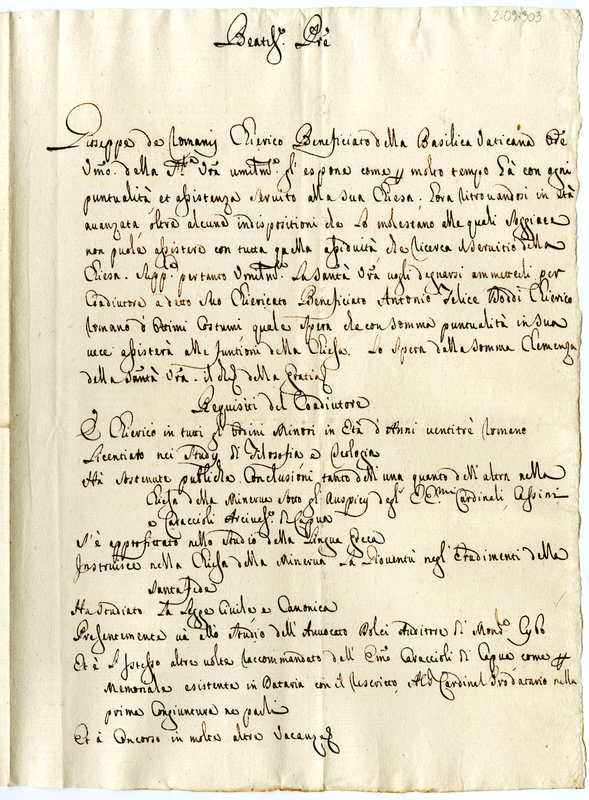 2-09-303
Beatis.mo Pre
Giuseppe de Romanis Chierico Beneficiato della Basilica Vaticana Ore
Vmo. della S.tà Vra umilm.te gl'espone come molto tempo hà con ogni
puntualità et assistenza servito alla sua Chiesa. hora ritrovandosi in età
avanzata oltre alcune indispositioni che lo molestano alle quali soggiace
non puole assistere con tutta quella assiduità che ricerca il servitio della
Chiesa. Supp.ca per tanto Umilm.te la Santà Vra vogli degnarsi ammetterli per
Coadiutore a detto suo Chiericato Beneficiato Antonio Felice Chierico
Romano d'ottimi Costumi quale spera che con somma puntualità in sua
vece assisterà alle funtioni della Chiesa. Lo spera dalla somma Clemenza
della Santà Vra. Il che della gratia
Requisiti del Coadiutore
È Chierico in tutti gl'ordini Minori in Età d'Anni ventitrè Romano
Licentiato nei Studij di Filosofia e Teologia
Hà sostenute publiche Conclusioni tanto dell'una quanto dell'altra nella
Chiesa della Minerva sotto gl'Auspicij degl'E.mi Cardinali Assini
e Caraccioli Arcives.o di Capua
S'è approfittato nello studio della Lingua Greca
Instruisce nella Chiesa della Minerva la Gioventù negl'Erudimenti della
Santa fede
Ha studiato la Legge Civile e Canonica
Presentemente và allo studio dell'Avvocato Bolci Auditore di Mons.r Cybo
Et è l'istesso altre volte raccommandato dall'Emo Caraccioli di Capua come
Memoriale esistente in Dataria con il rescritto, Al Cardinal Prodatario nella
prima Congiuntura ne parli
Et à Concorso in molte altre vacanze